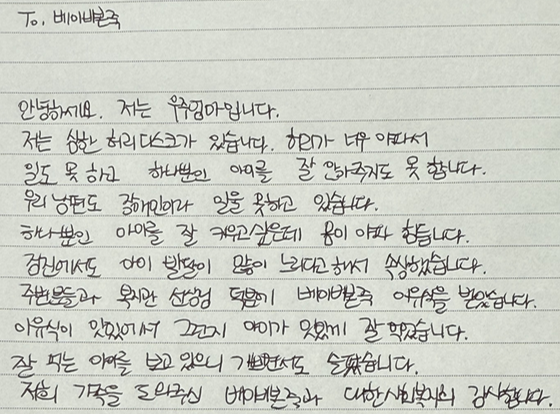 To. 베이비본죽
안녕하세요. 저는 우주엄마입니다.
저는 심한 허리디스크가 있습니다. 허리가 너무 아파서
일도 못 하고 하나뿐인 아이를 잘 안아주지도 못 합니다.
우리 남편도 장애인이라 일을 못하고 있습니다.
하나뿐인 아이를 잘 키우고싶은데 몸이 아파 힘듭니다.
검진에서도 아이 발달이 많이 느리다고해서 속상했습니다.
주변분들과 복지관 선생님 덕분에 베이비본죽 이유식을 받았습니다.
이유식이 맛있어서 그런지 아이가 맛있게 잘 먹었습니다.
잘 먹는 아이를 보고있으니 기쁘면서도 슬펐습니다.
저희 가족을 도와주신 베이비본죽과 대한사회복지회 감사합니다.